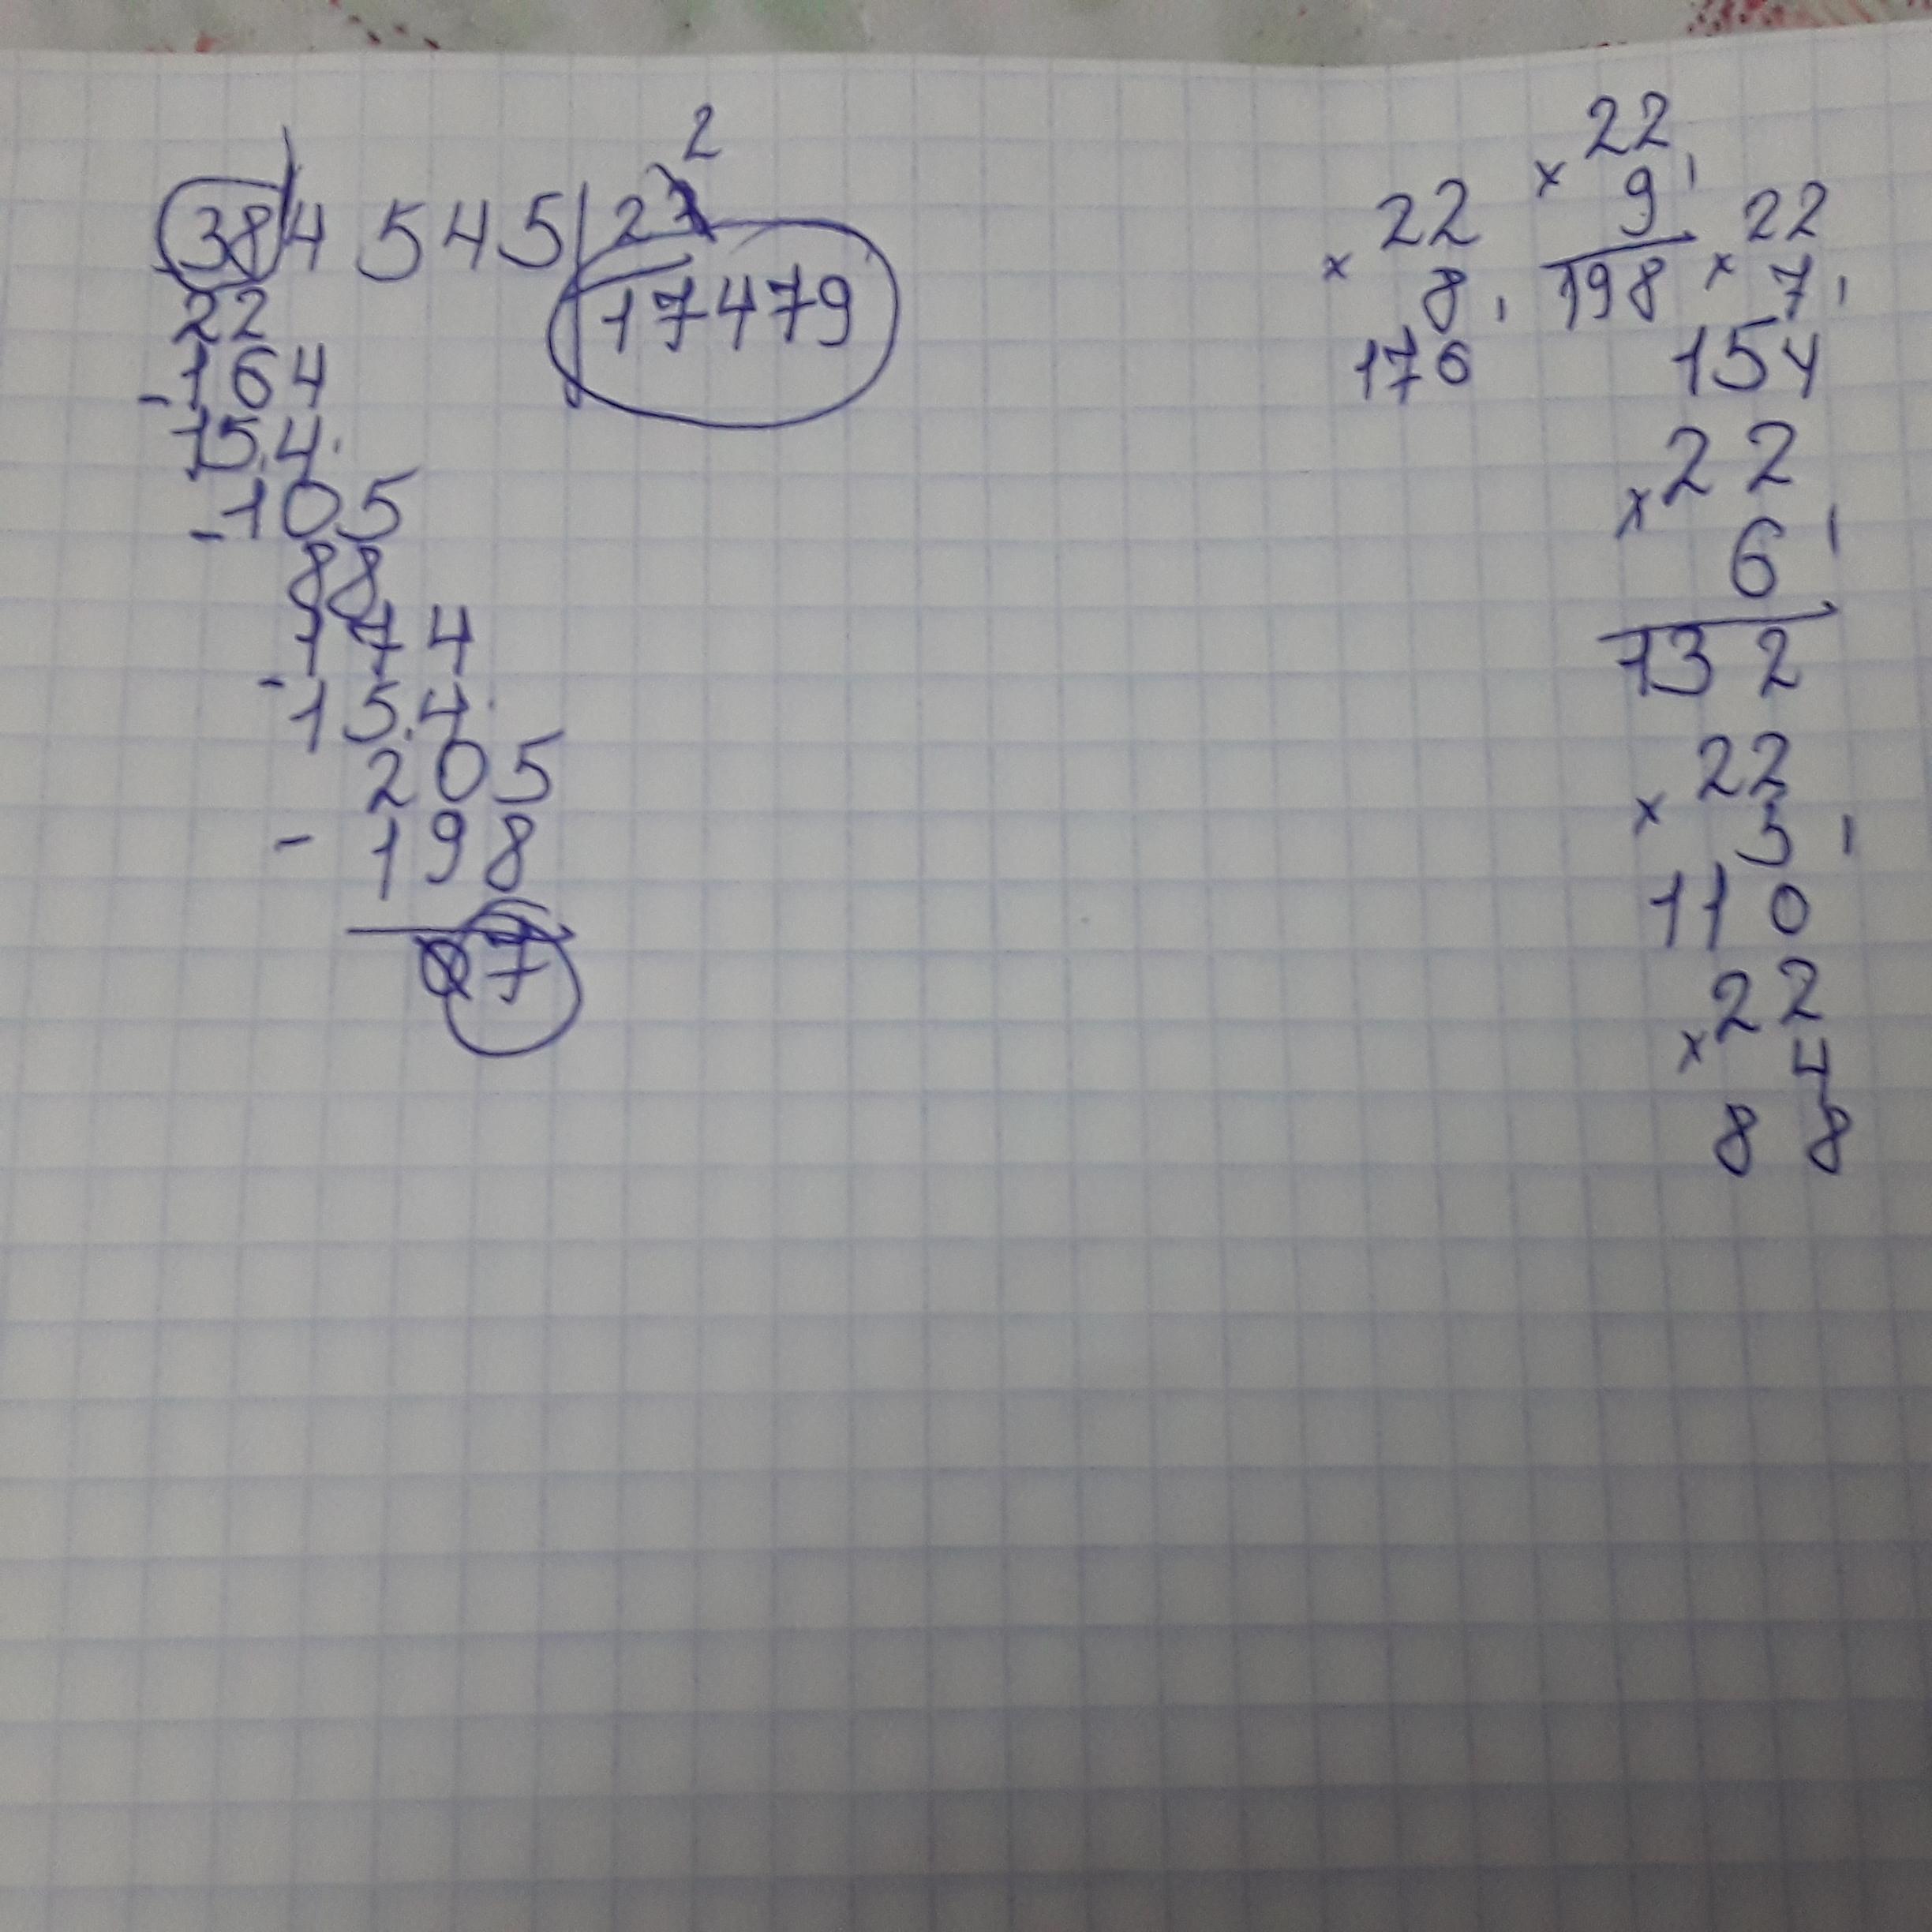 2
384 545 22
17479
22
- 164
154
- 105
88
- 174
154
205
- 198
07
22
× 9 1
198
22
× 8 1
176
22
× 7 1
154
22
× 6 1
132
22
× 5 1
110
22
× 4
88